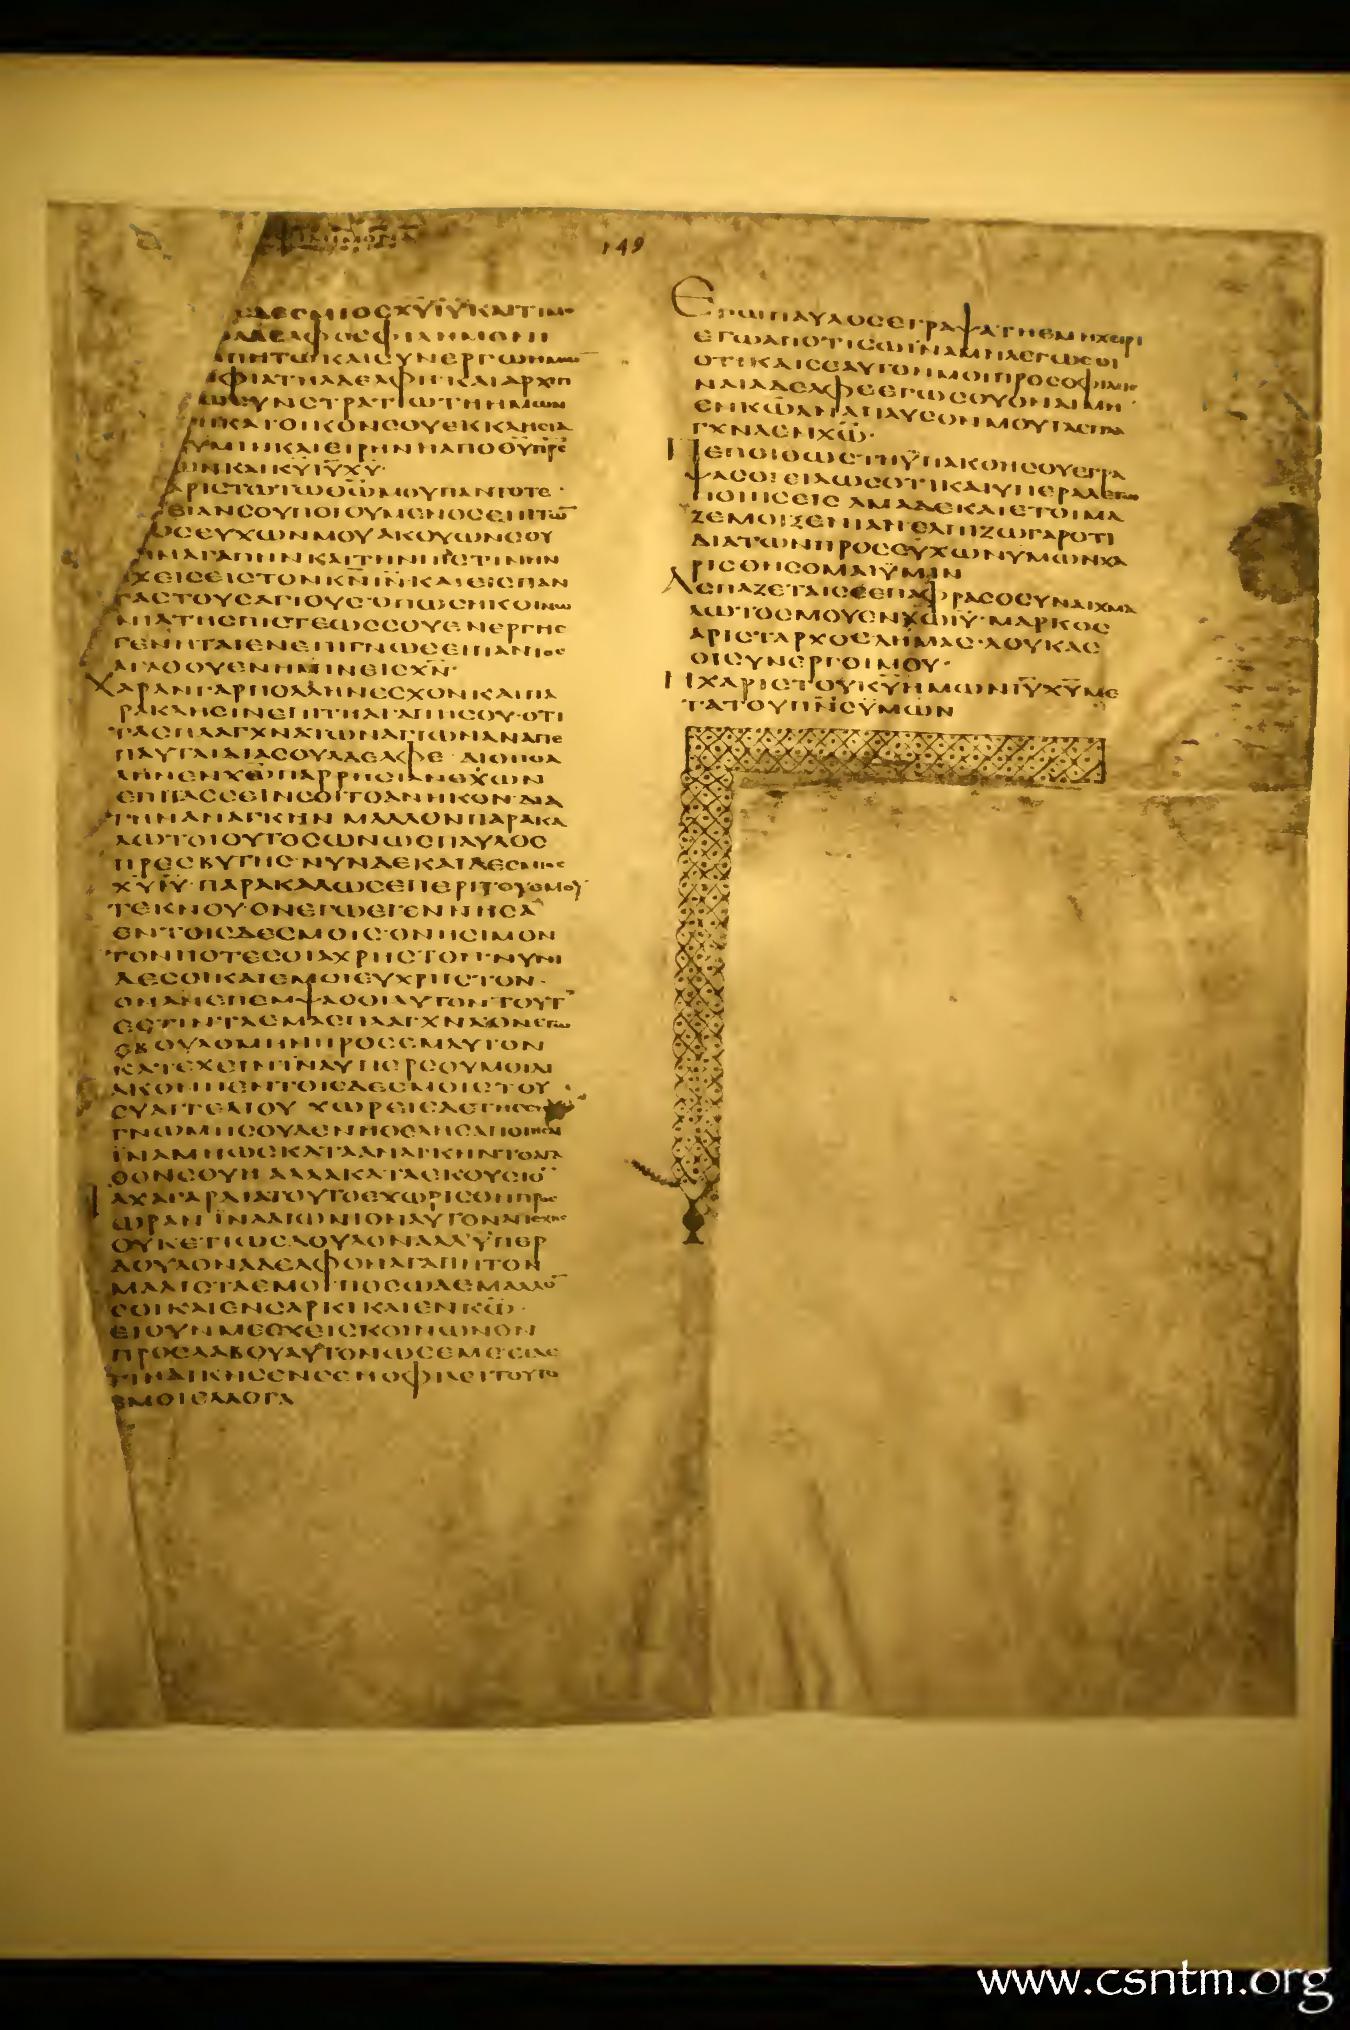 149
ΔΕΣΜΙΟΣΧ̅Υ̅Ι̅Υ̅ΚΑΙΤΙΜΟ
ΑΔΕΛΦΟΣΦΙΛΗΜΟΝΙ
ΑΠΗΤΩΚΑΙΣΥΝΕΡΓΩΗΜΩ
ΑΠΦΙΑΤΗΑΔΕΛΦΗΚΑΙΑΡΧΙΠ
ΩΣΥΝΣΤΡΑΤΙΩΤΗΗΜΩΝ
ΚΑΤΟΙΚΟΝΣΟΥΕΚΚΛΗΣΙΑ
ΥΜΙΝΚΑΙΕΙΡΗΝΗΑΠΟΘ̅Υ̅Π̅Ρ̅Σ̅
ΩΝΚΑΙΚ̅Υ̅Ι̅Υ̅Χ̅Υ̅
ΑΡΙΣΤΩΤΩΘ̅Ω̅ΜΟΥΠΑΝΤΟΤΕ
ΕΙΑΝΣΟΥΠΟΙΟΥΜΕΝΟΣΕΠΙΤΩ̅
ΟΣΕΥΧΩΝΜΟΥΑΚΟΥΩΝΣΟΥ
ΗΝΑΓΑΠΗΝΚΑΙΤΗΝΠΙΣΤΙΝΗΝ
ΕΧΕΙΣΕΙΣΤΟΝΚ̅Ν̅Ι̅Ν̅ΚΑΙΕΙΣΠΑΝ
ΤΑΣΤΟΥΣΑΓΙΟΥΣ·ΟΠΩΣΗΚΟΙΝΩ
ΝΙΑΤΗΣΠΙΣΤΕΩΣΣΟΥΕΝΕΡΓΗΣ
ΓΕΝΗΤΑΙΕΝΕΠΙΓΝΩΣΕΙΠΑΝΤΟΣ
ΑΓΑΘΟΥΕΝΗΜΙΝΕΙΣΧ̅Ν̅·
ΧΑΡΑΝΓΑΡΠΟΛΛΗΝΕΣΧΟΝΚΑΙΠΑ
ΡΑΚΛΗΣΙΝΕΠΙΤΗΑΓΑΠΗΣΟΥ·ΟΤΙ
ΤΑΣΠΛΑΓΧΝΑΤΩΝΑΓΙΩΝΑΝΑΠΕ
ΠΑΥΤΑΙΔΙΑΣΟΥΑΔΕΛΦΕ·ΔΙΟΠΟΛ
ΛΗΝΕΝΧ̅Ω̅ΠΑΡΡΗΣΙΑΝΕΧΩΝ
ΕΠΙΤΑΣΣΕΙΝΣΟΙΤΟΑΝΗΚΟΝΔΙΑ
ΤΗΝΑΝΑΓΚΗΝΜΑΛΛΟΝΠΑΡΑΚΑ
ΛΩΤΟΙΟΥΤΟΣΩΝΩΣΠΑΥΛΟΣ
ΠΡΕΣΒΥΤΗΣ·ΝΥΝΔΕΚΑΙΔΕΣΜΙΟΣ
Χ̅Υ̅Ι̅Υ̅·ΠΑΡΑΚΑΛΩΣΕΠΕΡΙΤΟΥΕΜΟΥ
ΤΕΚΝΟΥ·ΟΝΕΓΩΕΓΕΝΝΗΣΑ
ΕΝΤΟΙΣΔΕΣΜΟΙΣ·ΟΝΗΣΙΜΟΝ
ΤΟΝΠΟΤΕΣΟΙΑΧΡΗΣΤΟΝ·ΝΥΝΙ
ΔΕΣΟΙΚΑΙΕΜΟΙΕΥΧΡΗΣΤΟΝ·
ΟΝΑΝΕΠΕΜΨΑΣΟΙΑΥΤΟΝΤΟΥΤ
ΕΣΤΙΝΤΑΕΜΑΣΠΛΑΓΧΝΑΟΝΕΓΩ
ΕΒΟΥΛΟΜΗΝΠΡΟΣΕΜΑΥΤΟΝ
ΚΑΤΕΧΕΙΝΙΝΑΥΠΕΡΣΟΥΜΟΙΔΙ
ΑΚΟΝΗΕΝΤΟΙΣΔΕΣΜΟΙΣΤΟΥ
ΕΥΑΓΓΕΛΙΟΥ ΧΩΡΕΙΣΔΕΤΗΣΣΗΣ
ΓΝΩΜΗΣΟΥΔΕΝΗΘΕΛΗΣΑΠΟΙΗΣΑΙ
ΙΝΑΜΗΩΣΚΑΤΑΑΝΑΓΚΗΝΤΟΑΓΑ
ΘΟΝΣΟΥΗ ΑΛΛΑΚΑΤΑΕΚΟΥΣΙΟ̅
ΤΑΧΑΓΑΡΔΙΑΤΟΥΤΟΕΧΩΡΙΣΘΗΠΡΟΣ
ΩΡΑΝ ΙΝΑΑΙΩΝΙΟΝΑΥΤΟΝΑΠΕΧΗΣ
ΟΥΚΕΤΙΩΣΔΟΥΛΟΝΑΛΛΥΠΕΡ
ΔΟΥΛΟΝΑΔΕΛΦΟΝΑΓΑΠΗΤΟΝ
ΜΑΛΙΣΤΑΕΜΟΙΠΟΣΩΔΕΜΑΛΛΟ̅
ΣΟΙΚΑΙΕΝΣΑΡΚΙΚΑΙΕΝΚ̅Ω̅·
ΕΙΟΥΝΜΕΕΧΕΙΣΚΟΙΝΩΝΟΝ
ΠΡΟΣΛΑΒΟΥΑΥΤΟΝΩΣΕΜΕΕΙΔΕ
ΤΙΗΔΙΚΗΣΕΝΣΕΗΟΦΙΛΕΙΤΟΥΤΟ
ΕΜΟΙΕΛΛΟΓΑ
ΕΓΩΠΑΥΛΟΣΕΓΡΑΨΑΤΗΕΜΗΧΕΙΡΙ
ΕΓΩΑΠΟΤΙΣΩΙΝΑΜΗΛΕΓΩΣΟΙ
ΟΤΙΚΑΙΣΕΑΥΤΟΝΜΟΙΠΡΟΣΟΦΙΛΕΙΣ
ΝΑΙΑΔΕΛΦΕΕΓΩΣΟΥΟΝΑΙΜΗΝ
ΕΝΚ̅Ω̅ΑΝΑΠΑΥΣΟΝΜΟΥΤΑΣΠΛΑ
ΓΧΝΑΕΝΧ̅Ω̅·
ΠΕΠΟΙΘΩΣΤΗΫΠΑΚΟΗΣΟΥΕΓΡΑ
ΨΑΣΟΙΕΙΔΩΣΟΤΙΚΑΙΥΠΕΡΑΛΕΓΩ
ΠΟΙΗΣΕΙΣ ΑΜΑΔΕΚΑΙΕΤΟΙΜΑ
ΖΕΜΟΙΞΕΝΙΑΝΕΛΠΙΖΩΓΑΡΟΤΙ
ΔΙΑΤΩΝΠΡΟΣΕΥΧΩΝΥΜΩΝΧΑ
ΡΙΣΘΗΣΟΜΑΙΫΜΙΝ
ΑΣΠΑΖΕΤΑΙΣΕΕΠΑΦΡΑΣΟΣΥΝΑΙΧΜΑ
ΛΩΤΟΣΜΟΥΕΝΧ̅Ω̅Ι̅Υ̅·ΜΑΡΚΟΣ
ΑΡΙΣΤΑΡΧΟΣΔΗΜΑΣ·ΛΟΥΚΑΣ
ΟΙΣΥΝΕΡΓΟΙΜΟΥ·
ΗΧΑΡΙΣΤΟΥΚ̅Υ̅ΗΜΩΝΙ̅Υ̅Χ̅Υ̅ΜΕ
ΤΑΤΟΥΠ̅Ν̅Σ̅ΫΜΩΝ
www.csntm.org